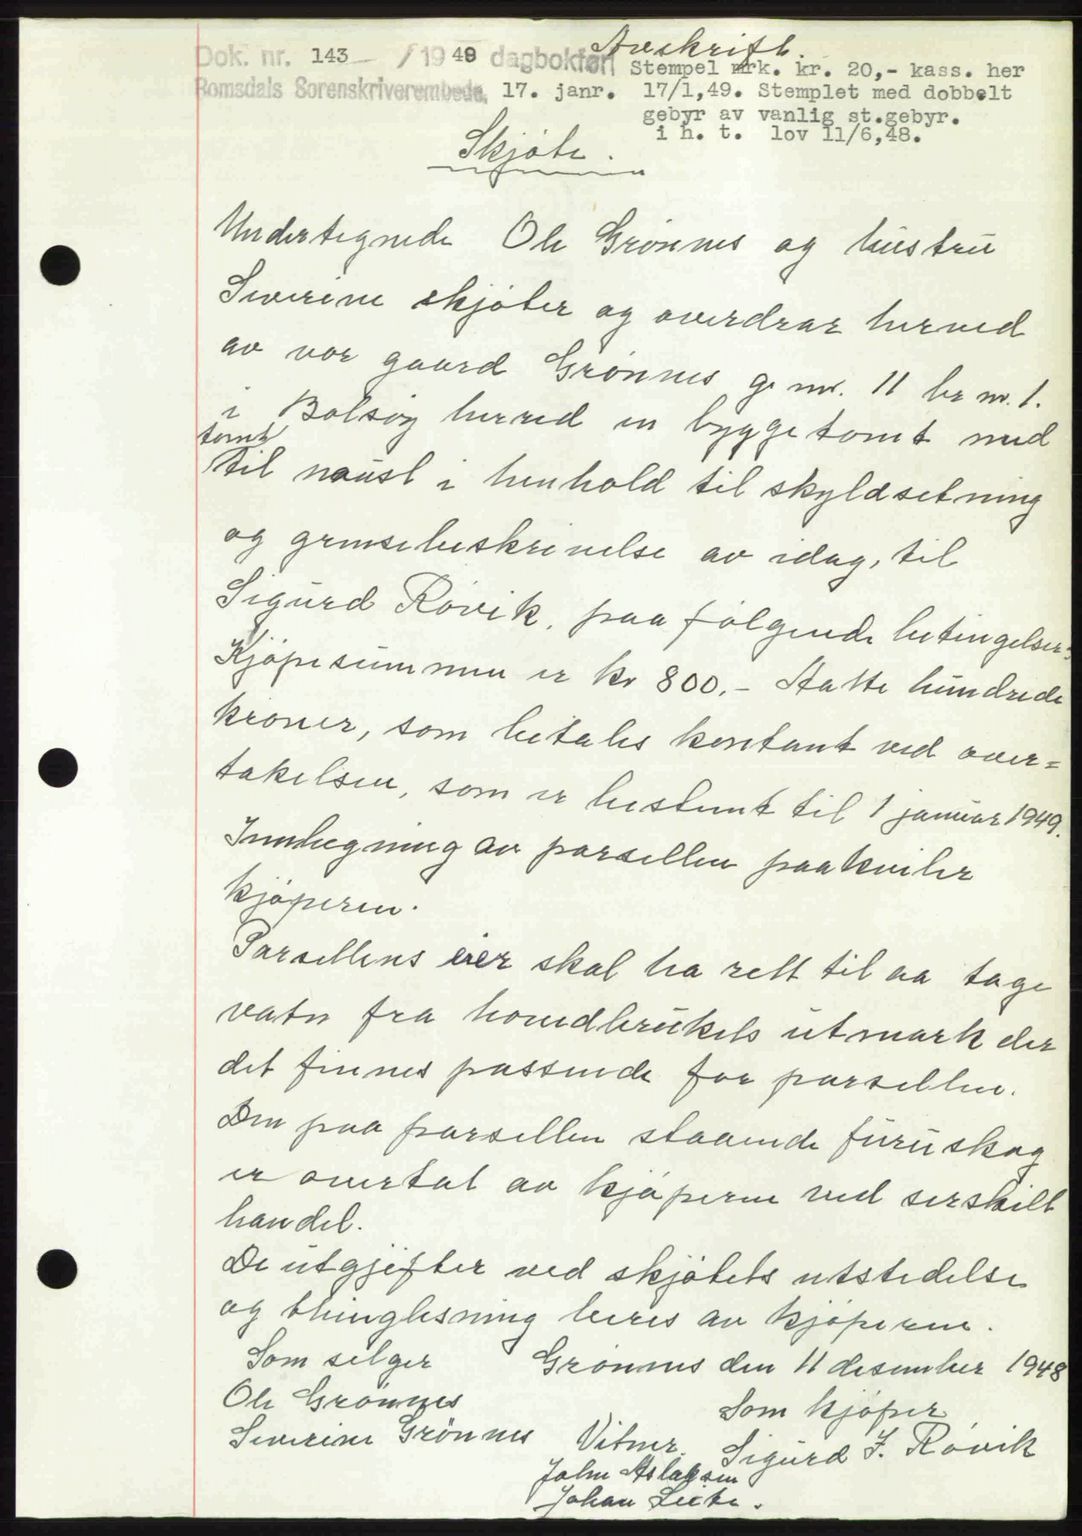 Avskrift.
Dok. nr. 143 / 1949 dagbokført
Stempel mrk. kr. 20,- kass. her
Romsdals Sorenskriverembede, 17. janr. 17/1,49. Stemplet med dobbelt
gebyr av vanlig st.gebyr.
i h. t. lov 11/6,48.
Skjøte.
Undertegnede Ole Grønnes og hustru
Severine skjøter og overdrar herved
av vor gaard Grønnes g. nr. 11 br nr. 1.
i Bolsøy herred en byggetomt med
tomt
til naust i henhold til skyldsetning
og grensebeskrivelse av idag, til
Sigurd Røvik, paa følgende betingelser:
Kjøpesummen er kr 800.- Aatte hundrede
kroner, som betales kontant ved over=
takelsen, som er bestemt til 1 januar 1949.
Innhegning av parsellen paakviler
kjøperen.
Parsellens eier skal ha rett til aa tage
vatn fra hovedbrukets utmark der
det finnes passende for parsellen.
Den paa parsellen staaende furuskog
er overtat av kjøperen ved serskilt
handel.
De utgjifter ved skjøtets utstedelse
og thinglesning beres av kjøperen.
Som selger Grønnes den 11 desember 1948
Ole Grønnes Som kjøper
Severine Grönnes Vitner. Sigurd J. Røvik
John Aslaksen
Johan